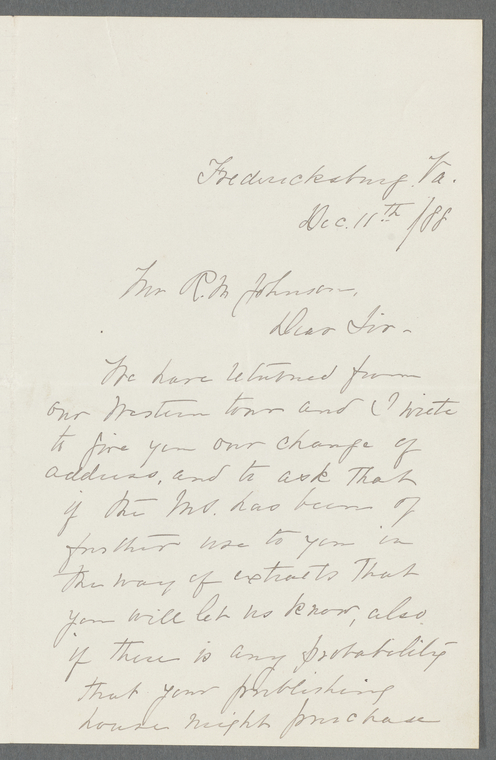 Fredericksburg. Va.
Dec. 11th /88
Mr R. M Johnson,
Dear Sir -
We have returned from
our Western tour and I write
to give you our change of
address, and to ask that
if the MS. has been of
further use to you in
the way of extracts that
you will let us know, also
if there is any probability
that your publishing
house might purchase